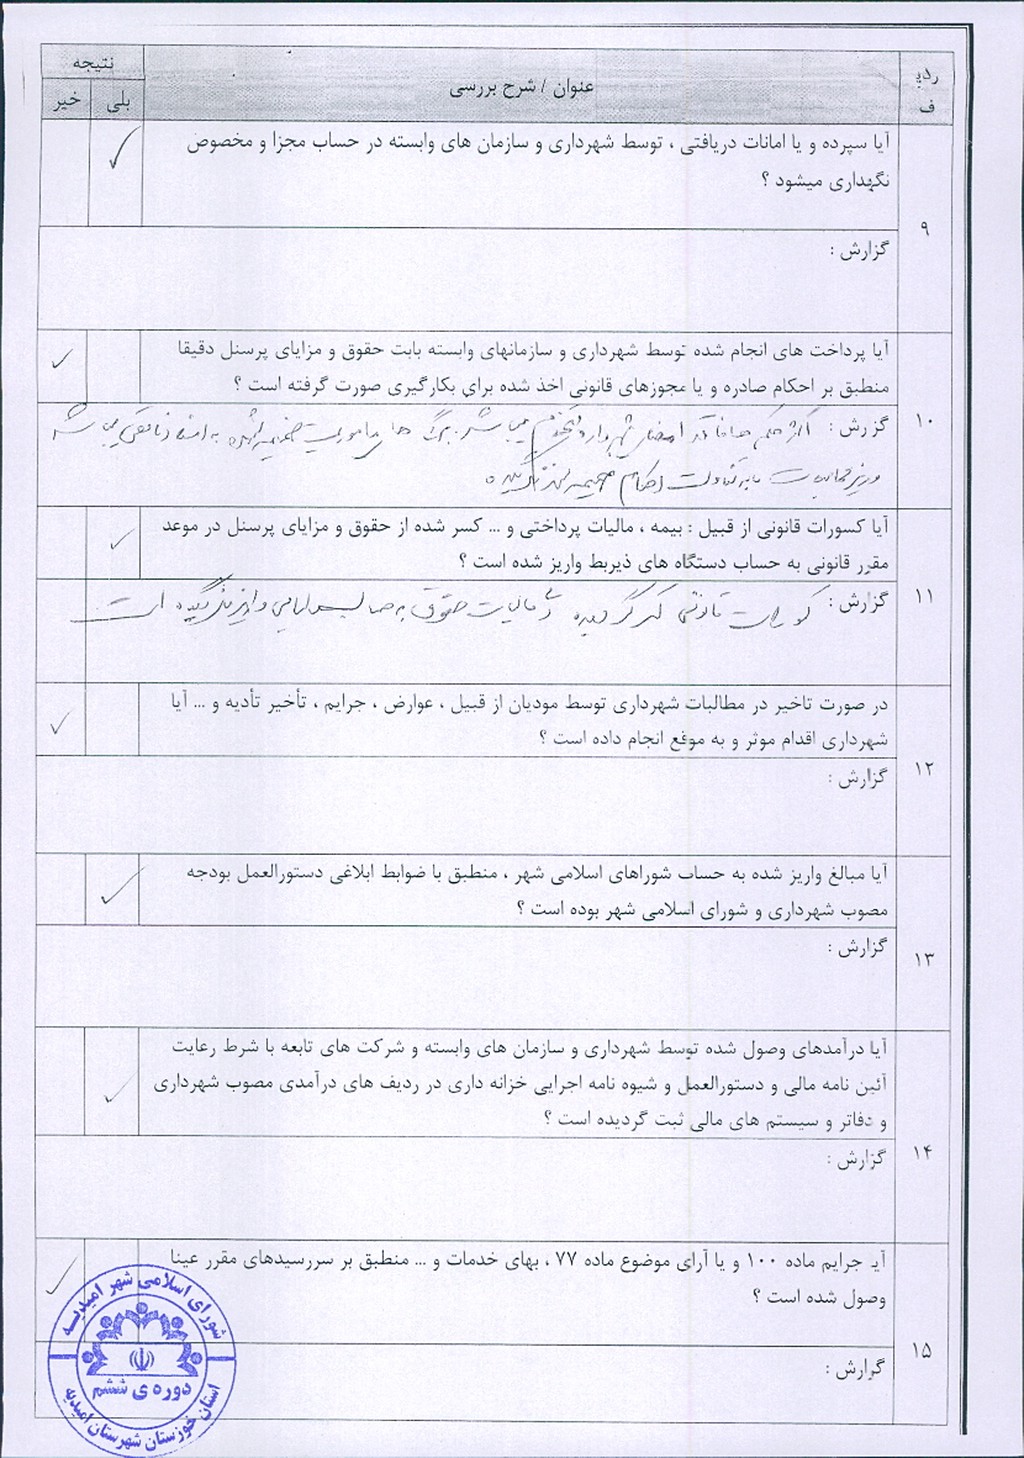 ردیف
عنوان / شرح بررسی
نتیجه
بلی
خیر
۹
آیا سپرده و یا امانات دریافتی ، توسط شهرداری و سازمان های وابسته در حساب مجزا و مخصوص
نگهداری میشود ؟
گزارش :
۱۰
آیا پرداخت های انجام شده توسط شهرداری و سازمانهای وابسته بابت حقوق و مزایای پرسنل دقیقا
منطبق بر احکام صادره و یا مجوزهای قانونی اخذ شده برای بکارگیری صورت گرفته است ؟
گزارش : اکثر حکم ها فاقد امضای شهردار می باشد. برگ های ماموریت ضمیمه نشده
احکام ضمیمه نگردیده
۱۱
آیا کسورات قانونی از قبیل : بیمه ، مالیات پرداختی و ... کسر شده از حقوق و مزایای پرسنل در موعد
مقرر قانونی به حساب دستگاه های ذیربط واریز شده است ؟
گزارش : کسورات قانونی کسر گردیده مالیات حقوق به حساب واریز نگردیده است
۱۲
در صورت تاخیر در مطالبات شهرداری توسط مودیان از قبیل ، عوارض ، جرایم ، تأخیر تأدیه و ... آیا
شهرداری اقدام موثر و به موقع انجام داده است ؟
گزارش :
۱۳
آیا مبالغ واریز شده به حساب شوراهای اسلامی شهر ، منطبق با ضوابط ابلاغی دستورالعمل بودجه
مصوب شهرداری و شورای اسلامی شهر بوده است ؟
گزارش :
۱۴
آیا درآمدهای وصول شده توسط شهرداری و سازمان های وابسته و شرکت های تابعه با شرط رعایت
آئین نامه مالی و دستورالعمل و شیوه نامه اجرایی خزانه داری در ردیف های درآمدی مصوب شهرداری
و دفاتر و سیستم های مالی ثبت گردیده است ؟
گزارش :
۱۵
آیا جرایم ماده ۱۰۰ و یا آرای موضوع ماده ۷۷ ، بهای خدمات و ... منطبق بر سررسیدهای مقرر عینا
وصول شده است ؟
گزارش :
شورای اسلامی شهر امیدیه
دوره ی ششم
استان خوزستان شهرستان امیدیه